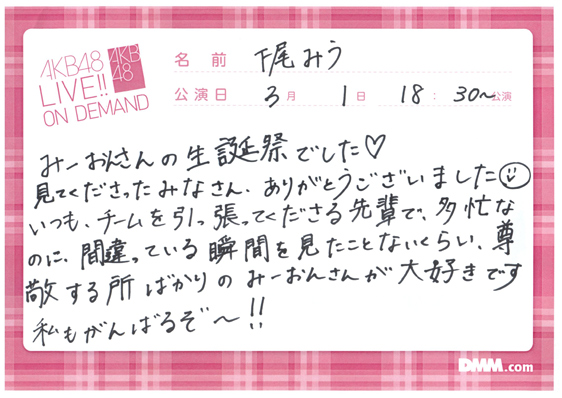 AKB48
LIVE!!
ON DEMAND
AKB
48
名前 下尾みう
公演日 3月 1日 18:30〜公演
みーおんさんの生誕祭でした♡
見てくださったみなさん、ありがとうございました☺
いつも、チームを引っ張ってくださる先輩で、多忙な
のに、間違っている瞬間を見たことないくらい、尊
敬する所ばかりのみーおんさんが大好きです
私もがんばるぞ〜!!
DMM.com